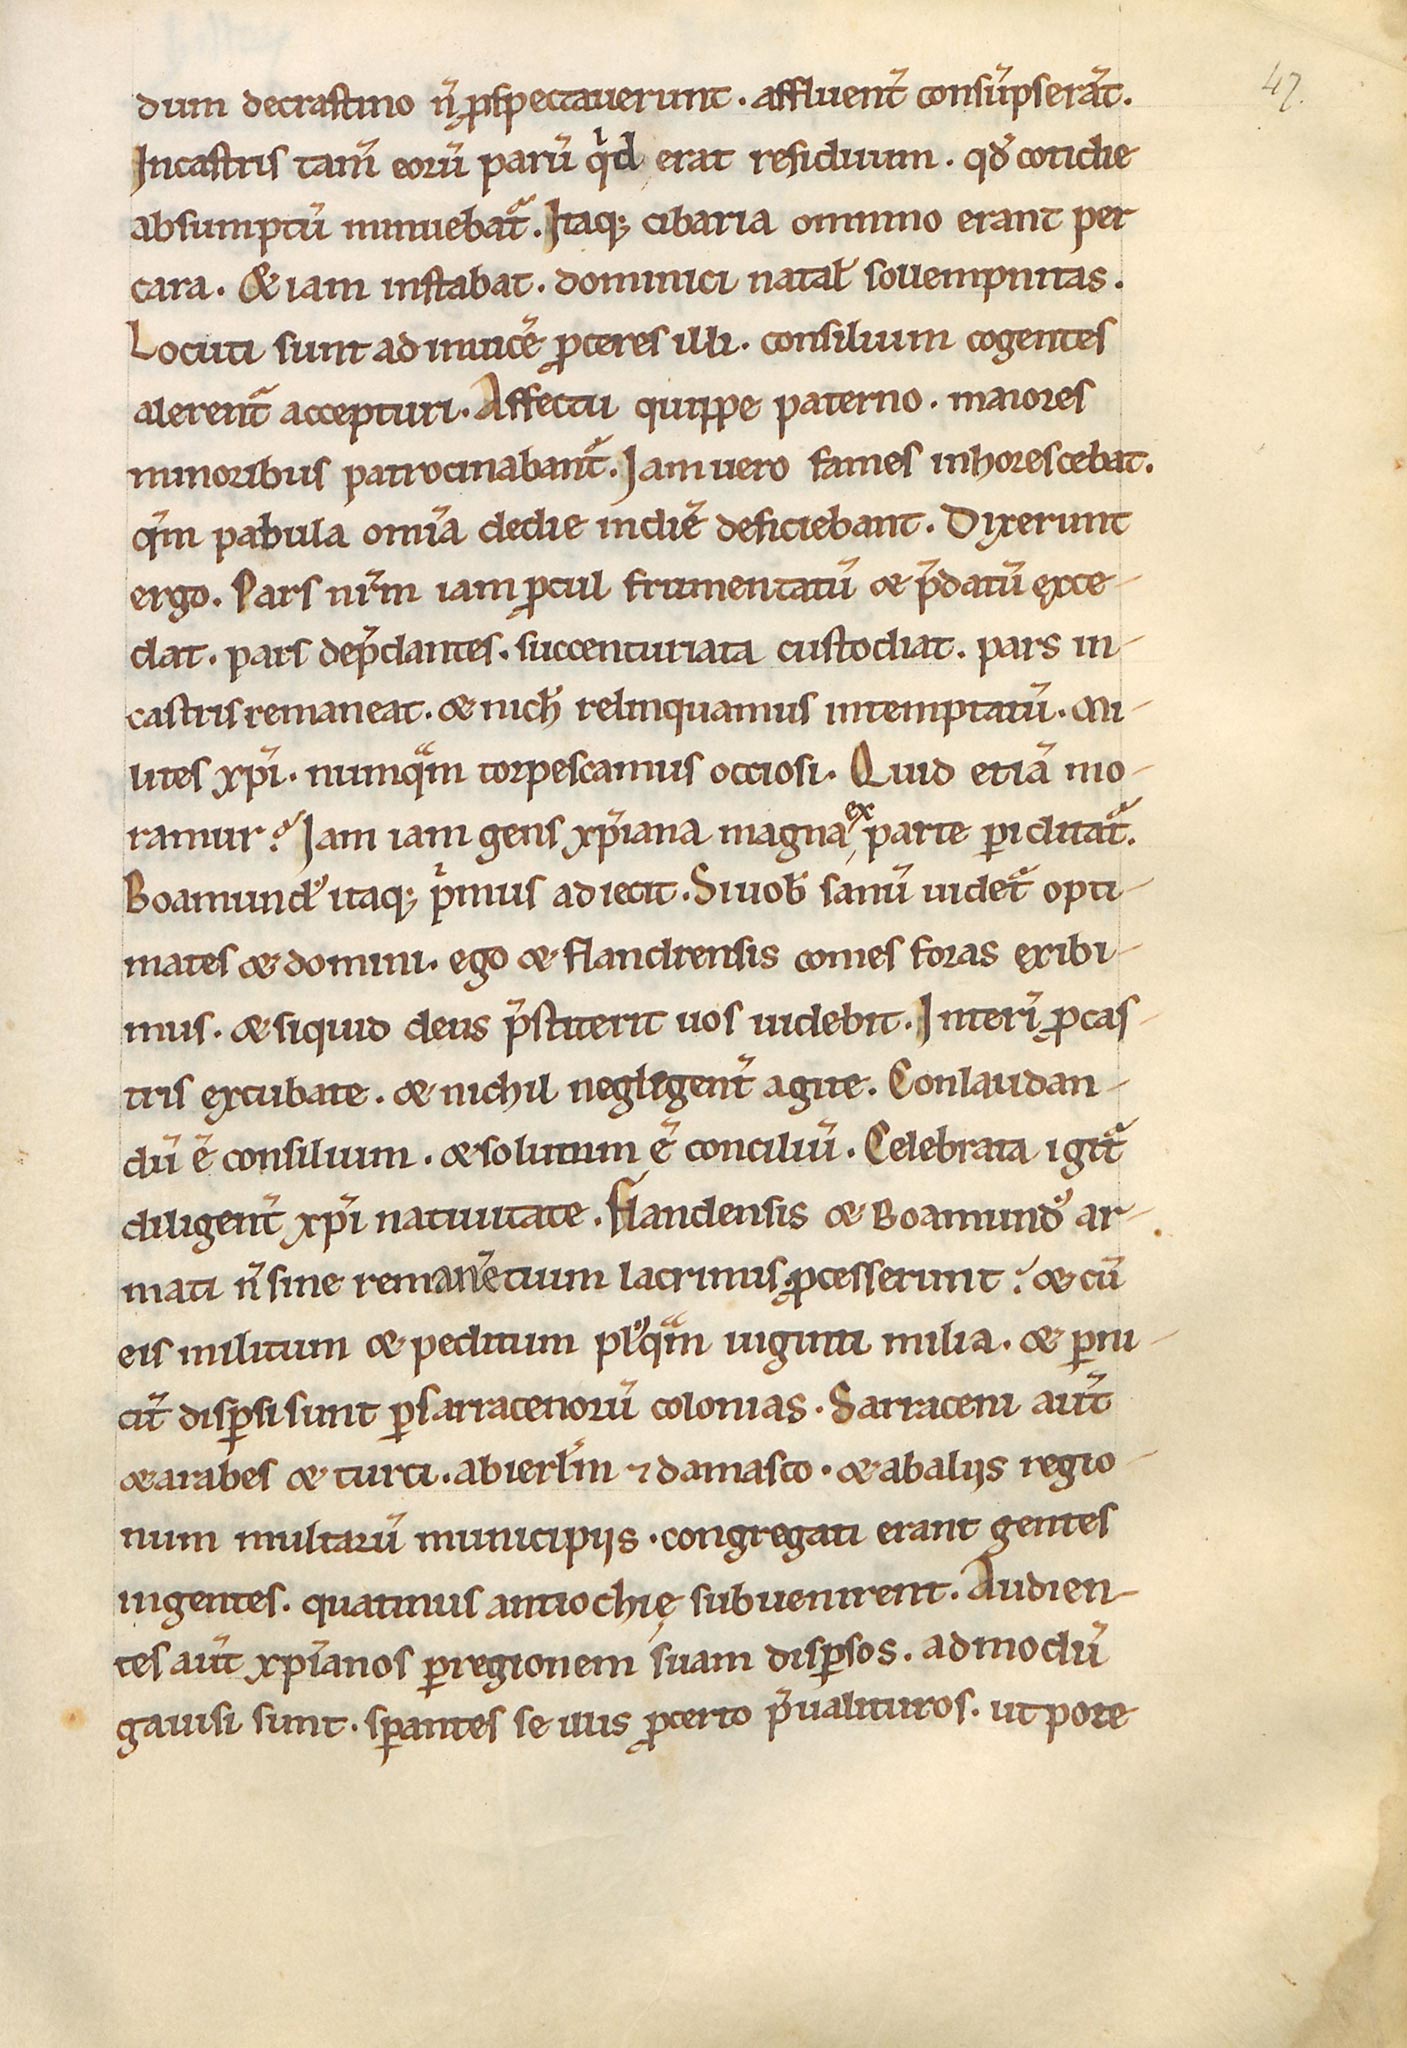 47.
dum decrastino n̄ ꝓspectauerunt. affluent̄ consūpserāt.
Incastris tam̄ eorū parū qͥd erat residuum. qd̄ cotidie
absumptū minuebat᷑. Itaq; cibaria omnino erant per
cara. & iam instabat. dominici natal̄ sollempnitas.
Locuti sunt ad inuicē ꝓceres illi. consilium cogentes
alerent᷑ accepturi. Affectu quippe paterno. maiores
minoribus patrocinabant᷑. Iam uero fames inhorescebat.
qm̄ pabula omīa dedie indiē deficiebant. Dixerunt
ergo. Pars nr̄m iam ꝓcul frumentatū & p̄datū exce-
dat. pars dep̄dantes. succenturiata custodiat. pars in-
castris remaneat. & nich̄ relinquamus intemptatū. Mi-
lites xp̄i. numqᵃm torpescamus occiosi. Quid etiā mo-
ramur? Iam iam gens xp̄iana magna ex parte ꝑiclitat᷑.
Boamund᷒ itaq; pͥmus adiecit. Si uob̄ sanū uidet᷑ opti-
mates & domini. ego & flandrensis comes foras exibi-
mus. & siquid deus p̄stiterit uos uidebit. Interī ꝓcas-
tris excubate. & nichil negligent̄ agite. Conlaudan-
dū ē consilium. & solutum ē conciliū. Celebrata igit᷑
diligent̄ xp̄i natiuitate. Flandensis & Boamund᷒ ar-
mati n̄ sine remanētium lacrimis ꝓcesserunt? & cū
eis militum & peditum pl᷒qᵃm uiginti milia. & ꝑni-
cit̄ disꝑsi sunt ꝑ sarracenorū colonias. Sarraceni aut̄
& arabes & turci. abierl̄m ⁊ damasco. & abaliis regio-
num multarū municipiis. congregati erant gentes
ingentes. quatinus antiochię subuenirent. Audien-
tes aut̄ xp̄ianos ꝑregionem suam disꝑsos. admodū
gauisi sunt. sꝑantes se illis ꝓcerto p̄ualituros. utpote